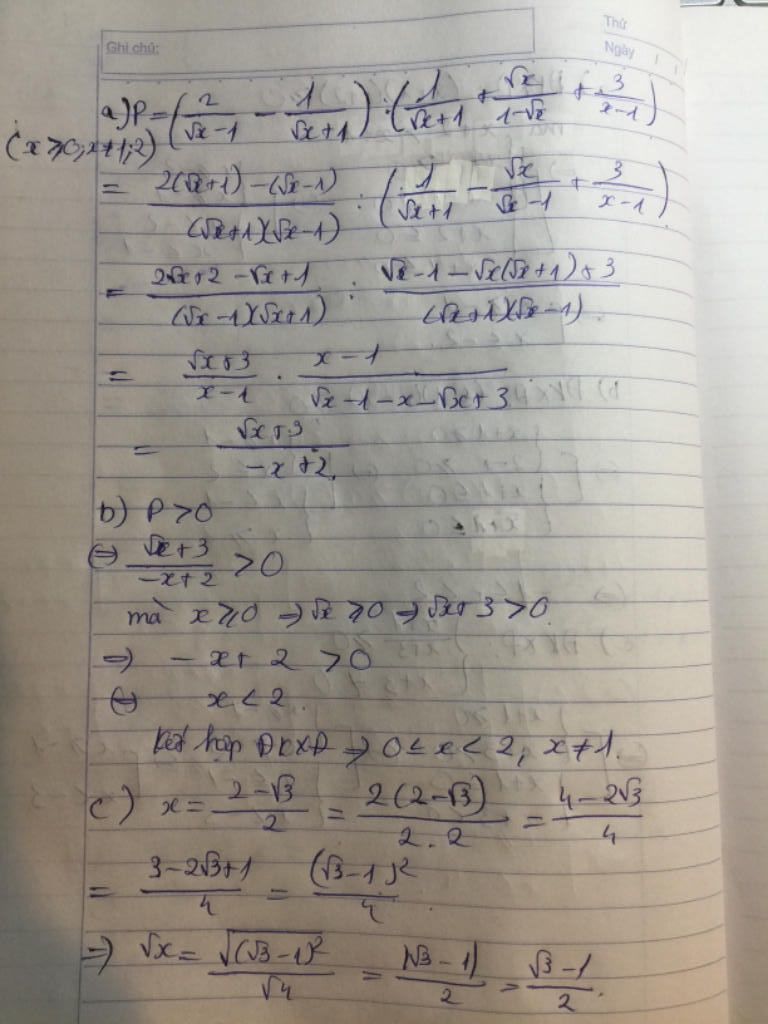 Thứ
Ghi chú:
Ngày
a) P = (2/(√x-1) - 1/(√x+1)) : (1/(√x+1) + √x/(1-√x) + 3/(x-1))
(x ≥ 0; x ≠ 1; 2)
= (2(√x+1) - (√x-1))/((√x+1)(√x-1)) : (1/(√x+1) - √x/(√x-1) + 3/(x-1))
= (2√x+2 - √x+1)/((√x-1)(√x+1)) : (√x-1-√x(√x+1)+3)/((√x+1)(√x-1)).
= (√x+3)/(x-1) . (x-1)/(√x-1-x-√x+3)
= (√x+3)/(-x+2).
b) P > 0
⇔ (√x+3)/(-x+2) > 0
mà x ≥ 0 ⇒ √x ≥ 0 ⇒ √x+3 > 0.
⇒ -x+2 > 0
⇔ x < 2.
Kết hợp ĐKXĐ ⇒ 0 ≤ x < 2, x ≠ 1.
c) x = (2-√3)/2 = (2(2-√3))/(2.2) = (4-2√3)/4
= (3-2√3+1)/4 = (√3-1)²/4.
⇒ √x = √((√3-1)²)/√4 = |√3-1|/2 = (√3-1)/2.